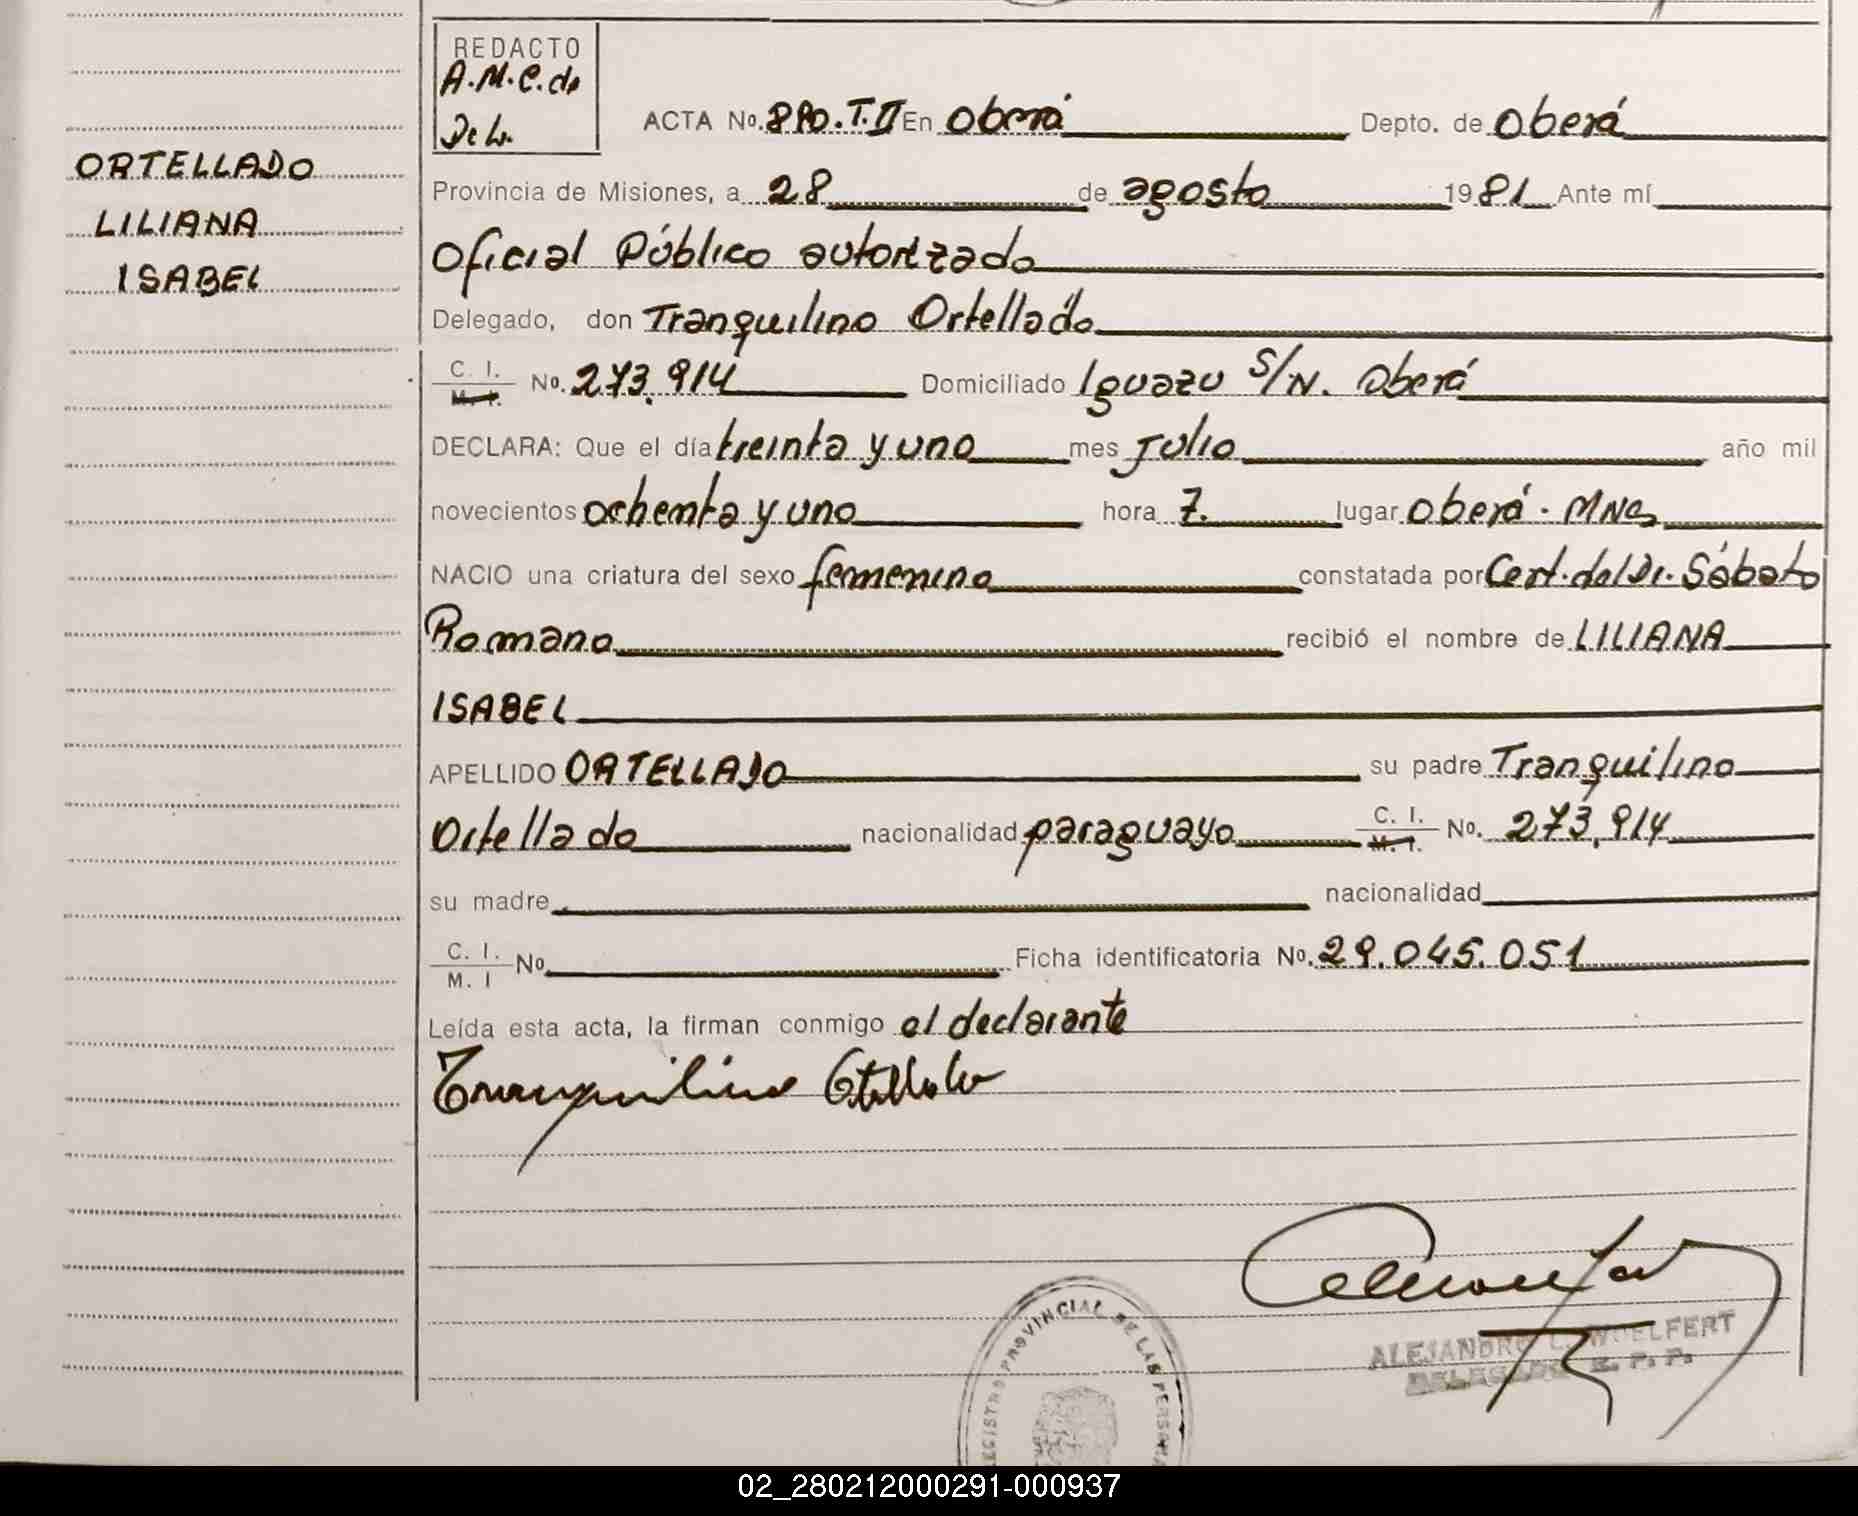 REDACTO
A.M.C. de
De L.
ACTA No. En Oberá Depto. de Oberá
ORTELLADO
LILIANA
ISABEL
Provincia de Misiones, a 28 de agosto 1981 Ante mí
Oficial Público autorizado
Delegado, don Tranquilino Ortellado
C. I.
M. I. No. 273.914 Domiciliado Iguazu S/N. Oberá
DECLARA: Que el día treinta y uno mes Julio año mil
novecientos ochenta y uno hora 7. lugar Oberá - MNes
NACIO una criatura del sexo femenino constatada por Cert. del Dr. Sábato
Romano recibió el nombre de LILIANA
ISABEL
APELLIDO ORTELLADO su padre Tranquilino
Ortellado nacionalidad paraguayo C. I. M. I. No. 273.914
su madre nacionalidad
C. I.
M. I No Ficha identificatoria No. 29.045.051
Leída esta acta, la firman conmigo el declarante
Tranquilino Ortellado
REGISTRO PROVINCIAL DE LAS PERSONAS
ALEJANDRO L. WOELFERT
DELEGADO R. P. P.
02_280212000291-000937